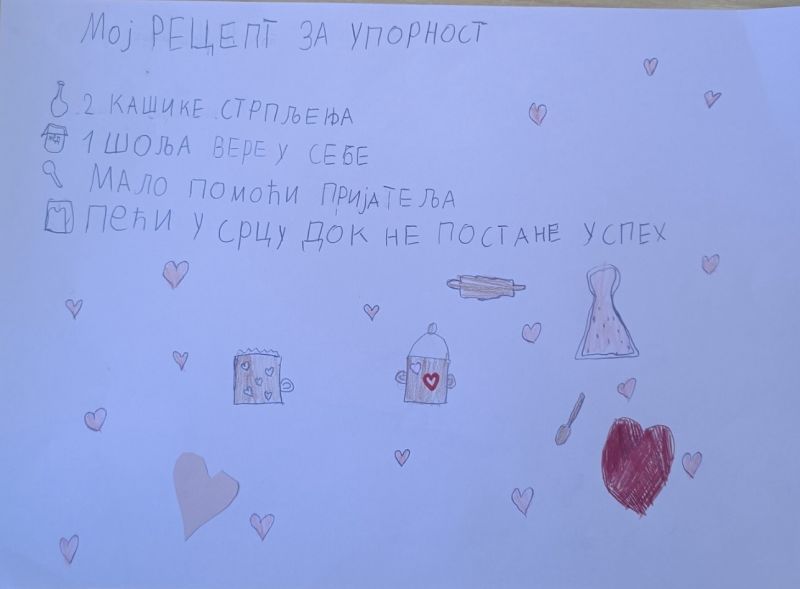 Мој РЕЦЕПТ ЗА УПОРНОСТ
2 КАШИКЕ СТРПЉЕЊА
1 ШОЉА ВЕРЕ У СЕБЕ
МАЛО ПОМОЋИ ПРИЈАТЕЉА
ПЕЋИ У СРЦУ ДОК НЕ ПОСТАНЕ УСПЕХ